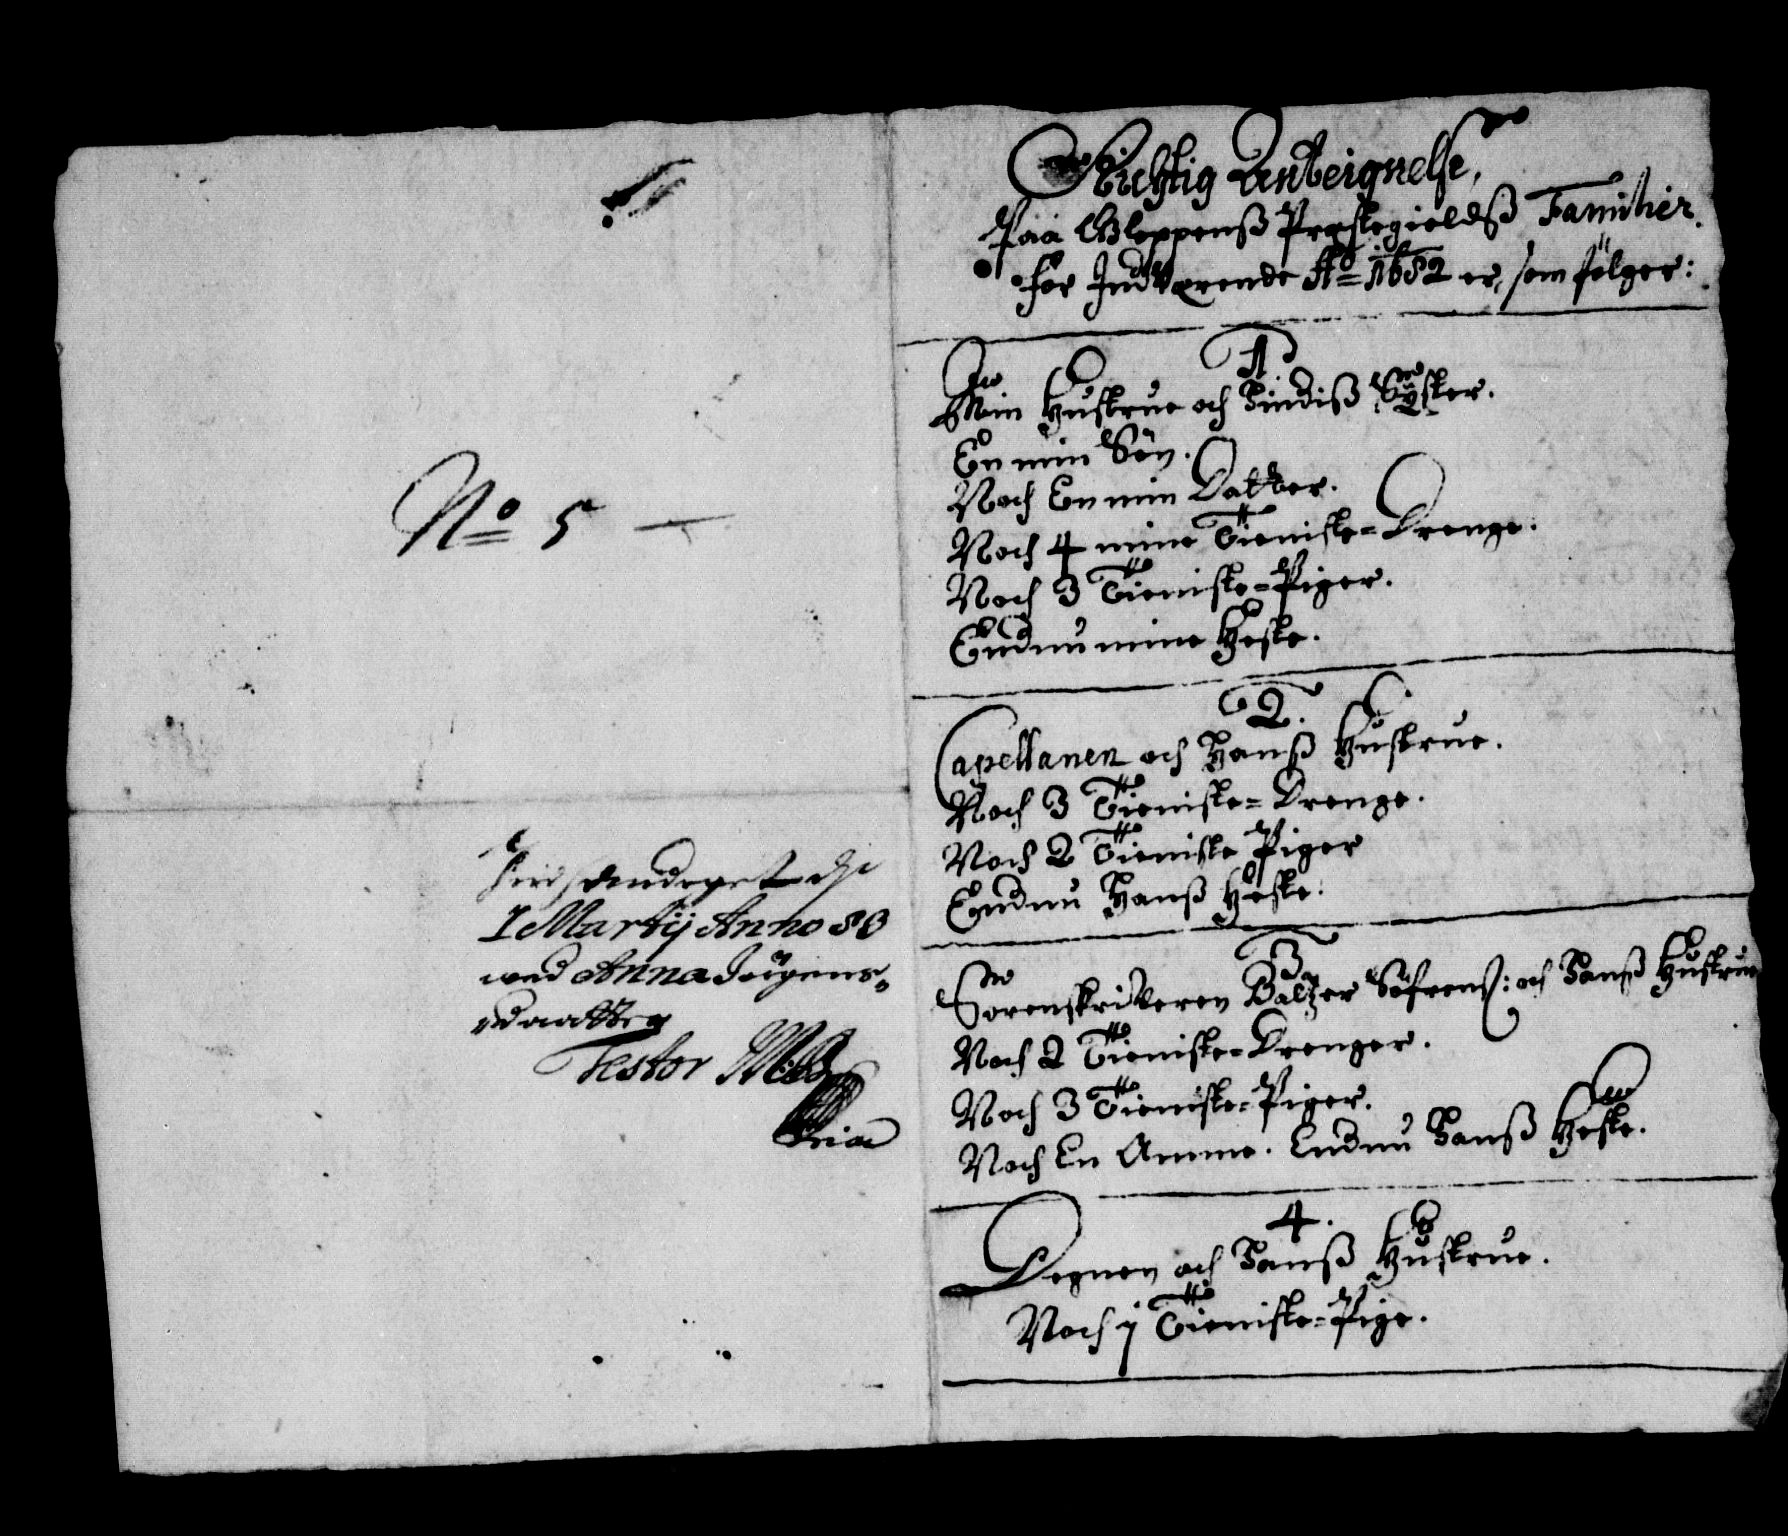 No 5 —
1 Martij Anno 83
wed Anna Jörgens
daatter
Testor
Richtig Anteignelse,
Paa Gleppenß Præstegieldß Familier.
for Indværende Ao 1682 er, som fölger:
1.
Min Hustrue och Hindiß Syster.
En min Sön.
Noch En min Datter.
Noch 4 mine Tieniste-Drenge.
Noch 3 Tieniste-Piger.
Endnu mine Heste.
2.
Capellanen och Hanß Hustrue.
Noch 3 Tieniste-Drenge.
Noch 2 Tieniste Piger
Endnu Hanß Heste.
3.
Sorenskriveren Baltzer Söfrens: och Hanß Hustrue
Noch 2 Tieniste-Drenger.
Noch 3 Tieniste-Piger.
Noch En Amme. Endnu Hanß Heste.
4.
Degnen och Hanß Hustrue.
Noch j Tieniste-Pige.